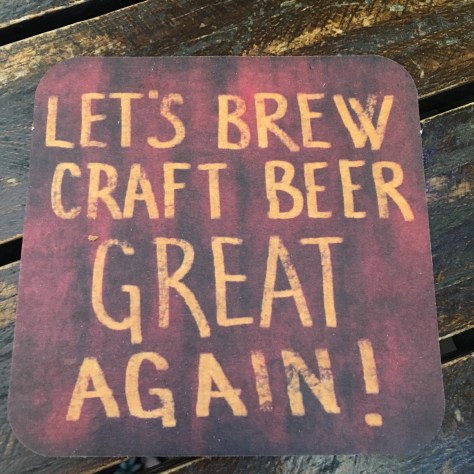 LET'S BREW
CRAFT BEER
GREAT
AGAIN!